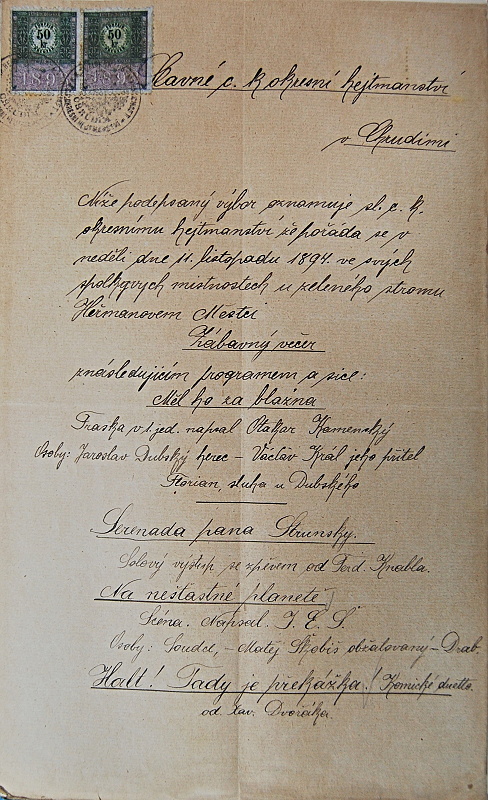 50 kr 50 kr
189 189
Slavné c. k. okresní hejtmanství
v Chrudimi
Níže podepsaný výbor oznamuje sl. c. k.
okresnímu hejtmanství že pořádá se v
neděli dne 11. listopadu 1894. ve svých
spolkových místnostech u zeleného stromu
Heřmanovem Městci
Zábavný večer
znásledujícím programem a sice:
Měl ho za blázna
Fraška v 1. jed. napsal Otakar Kamenský
Osoby: Jaroslav Dubský herec – Václav Král jeho přítel
Florian, sluha u Dubského
Serenada pana Strunsky.
Solový výstup se zpěvem od Ferd. Knabla.
Na nešťastné planetě
Scéna. Napsal J. E. Š.
Osoby: Soudce, – Matěj Škobis obžalovaný – Drab.
Halt! Tady je překážka! Komické duetto
od Xav. Dvořáka.